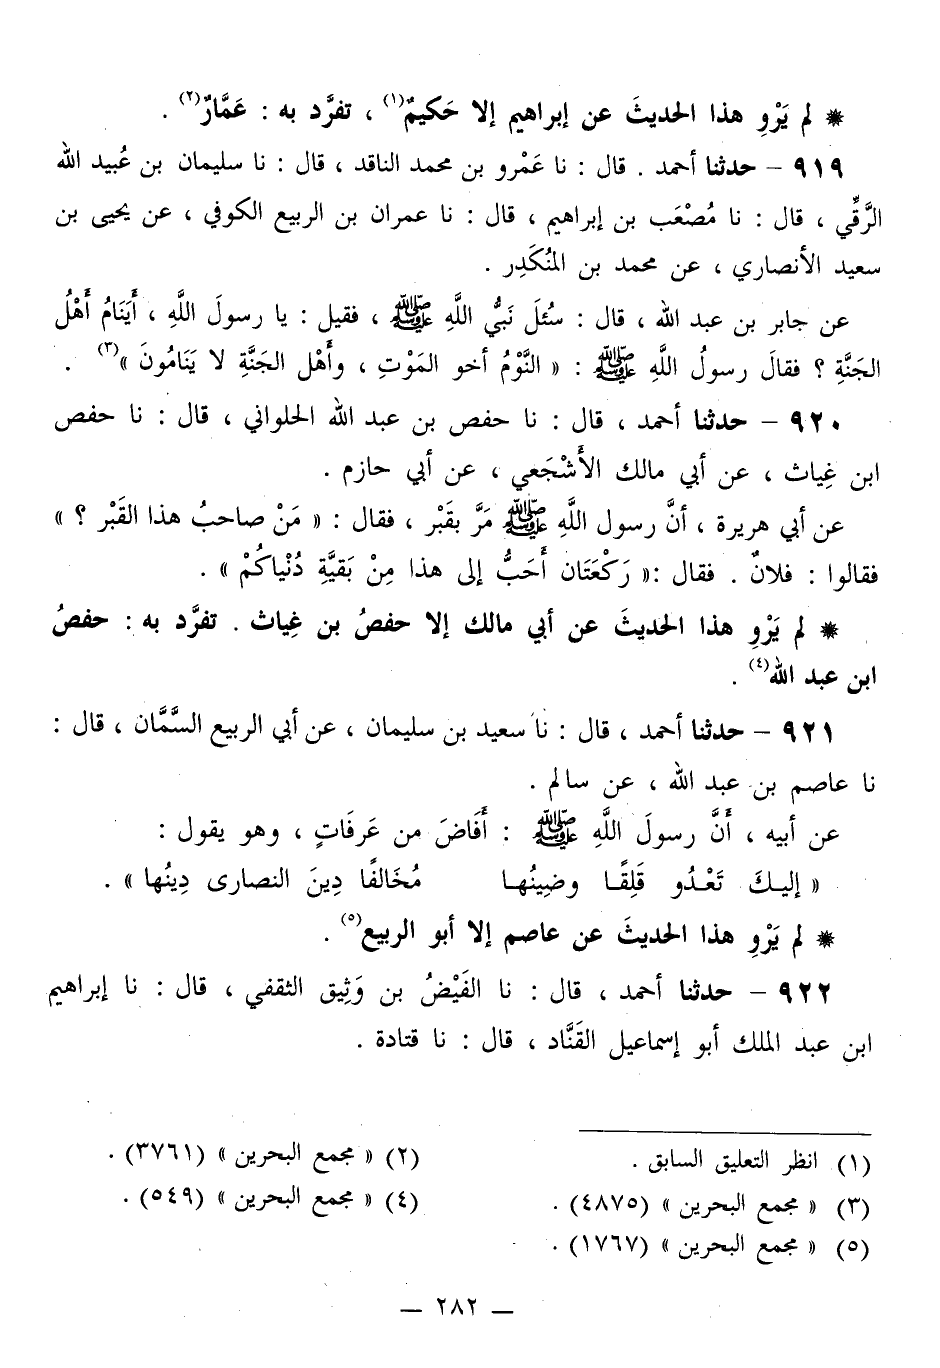 * لم يَرْوِ هذا الحديثَ عن إبراهيم إلا حَكيمٌ(١) ، تفرَّد به : عَمَّارٌ(٢) .
٩١٩ – حدثنا أحمد . قال : نا عَمْرو بن محمد الناقد ، قال : نا سليمان بن عُبيد الله
الرَّقِّي ، قال : نا مُصْعَب بن إبراهيم ، قال : نا عمران بن الربيع الكوفي ، عن يحيى بن
سعيد الأنصاري ، عن محمد بن المُنكَدِر .
عن جابر بن عبد الله ، قال : سُئلَ نَبيُّ اللَّهِ ﷺ ، فقيل : يا رسولَ اللَّهِ ، أَيَنَامُ أَهْلُ
الجَنَّةِ ؟ فقالَ رسولُ اللَّهِ ﷺ : « النَّوْمُ أخو المَوْتِ ، وأَهْل الجَنَّةِ لا يَنَامُونَ »(٣) .
٩٢٠ – حدثنا أحمد ، قال : نا حفص بن عبد الله الحلواني ، قال : نا حفص
ابن غِياث ، عن أبي مالك الأَشْجَعي ، عن أبي حازم .
عن أبي هريرة ، أنَّ رسول اللَّهِ ﷺ مَرَّ بقَبْر ، فقال : « مَنْ صاحبُ هذا القَبْر ؟ »
فقالوا : فلانٌ . فقال :« رَكْعَتَان أَحَبُّ إلى هذا مِنْ بَقيَّةِ دُنْياكُمْ » .
* لم يَرْوِ هذا الحديثَ عن أبي مالك إلا حفصُ بن غِياث . تفرَّد به : حفصُ
ابن عبد الله(٤) .
٩٢١ – حدثنا أحمد ، قال : نا سعيد بن سليمان ، عن أبي الربيع السَّمَّان ، قال :
نا عاصم بن عبد الله ، عن سالم .
عن أبيه ، أَنَّ رسولَ اللَّهِ ﷺ : أَفَاضَ من عَرفَاتٍ ، وهو يقول :
« إليـكَ تَعْـدُو قَلِقًـا وضِينُهـا مُخَالفًا دِينَ النصارى دِينُها » .
* لم يَرْوِ هذا الحديثَ عن عاصم إلا أبو الربيع(٥) .
٩٢٢ – حدثنا أحمد ، قال : نا الفَيْضُ بن وَثِيق الثقفي ، قال : نا إبراهيم
ابن عبد الملك أبو إسماعيل القَنَّاد ، قال : نا قتادة .
(١) انظر التعليق السابق .
(٢) « مجمع البحرين » (٣٧٦١) .
(٣) « مجمع البحرين » (٤٨٧٥) .
(٤) « مجمع البحرين » (٥٤٩) .
(٥) « مجمع البحرين » (١٧٦٧) .
— ٢٨٢ —